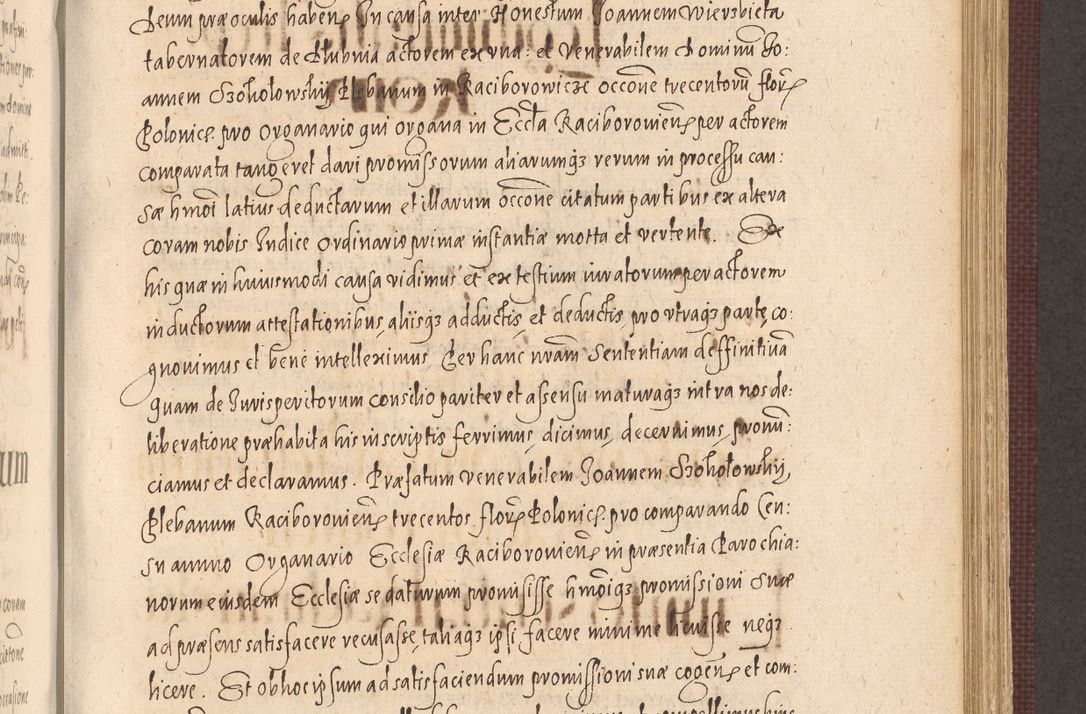 Deum præ oculis haben̄ In causa inter Honestum Joannem Wierzbieta
tabernatorem de Dłubnia actorem ex vna: et Venerabilem Dominū Jo:
annem Szohołowskij Plebanum in Raciborowicze occōne trecentorū florῥ
Polonic. pro Organario qui organa in Eccl̄a Raciborovien̄ per actorem
comparata tangeret dari promissorum aliarumq3 rerum in processu cau:
sæ hmōi latius deductarum et illarum occōne citatum partibus ex altera
coram nobis Iudice Ordinario primæ instantiæ motta et vertente. Ex
his quæ in huiusmodi causa vidimus et ex testium iuratorum per actorem
inductorum attestationibus, aliisq3 adductis, et deductis, pro vtraq3 parte, co:
gnovimus et bene intelleximus, Per hanc nr̄am Sententiam deffinitivā
quam de Iurisperitorum consilio pariter et assensu maturaq3 intra nos de:
liberatione præhabita his in scriptis ferrimus, dicimus, decernimus, pronū:
ciamus et declaramus. Præfatum Venerabilem Joannem Szohołowskij
Plebanum Raciborovien̄ trecentos flor̄ Polonic. pro comparando Cen:
su annuo Organario Ecclesiæ Raciborovien̄ in præsentia Parochia:
norum eiusdem Ecclesiæ se daturum promisisse hmōiq3 promissioni suæ
ad præsens satisfacere recusasse, taliaq3 ipsi facere minime licuisse neq3
licere. Et ob hoc ipsum ad satisfaciendum promissioni suæ cogen̄ et com: